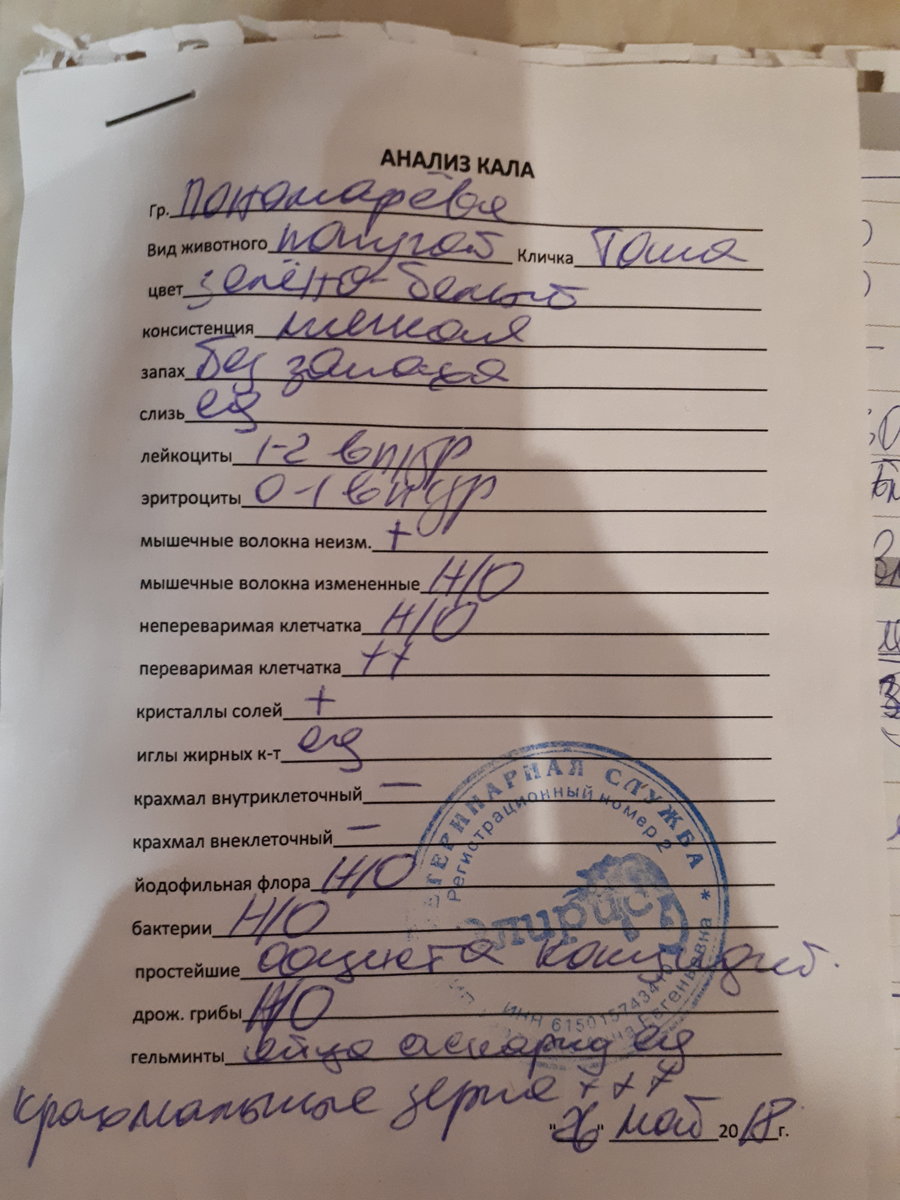 АНАЛИЗ КАЛА
Гр. Пономарёва
Вид животного попугай Кличка Гоша
цвет зелёно-белый
консистенция мягкая
запах без запаха
слизь ед
лейкоциты 1-2 в п/зр
эритроциты 0-1 в п/зр
мышечные волокна неизм. +
мышечные волокна измененные Н/О
непереваримая клетчатка Н/О
переваримая клетчатка ++
кристаллы солей +
иглы жирных к-т ед
крахмал внутриклеточный —
крахмал внеклеточный —
йодофильная флора Н/О
бактерии Н/О
простейшие ооциста кокцидий.
дрож. грибы Н/О
гельминты яйца аскарид ед
крахмальные зерна + + +
"26" май 2018 г.
ТЕРИНАРНАЯ СЛУЖБА *
Регистрационный номер 2
ИНН 6150157434
Евгеньевна